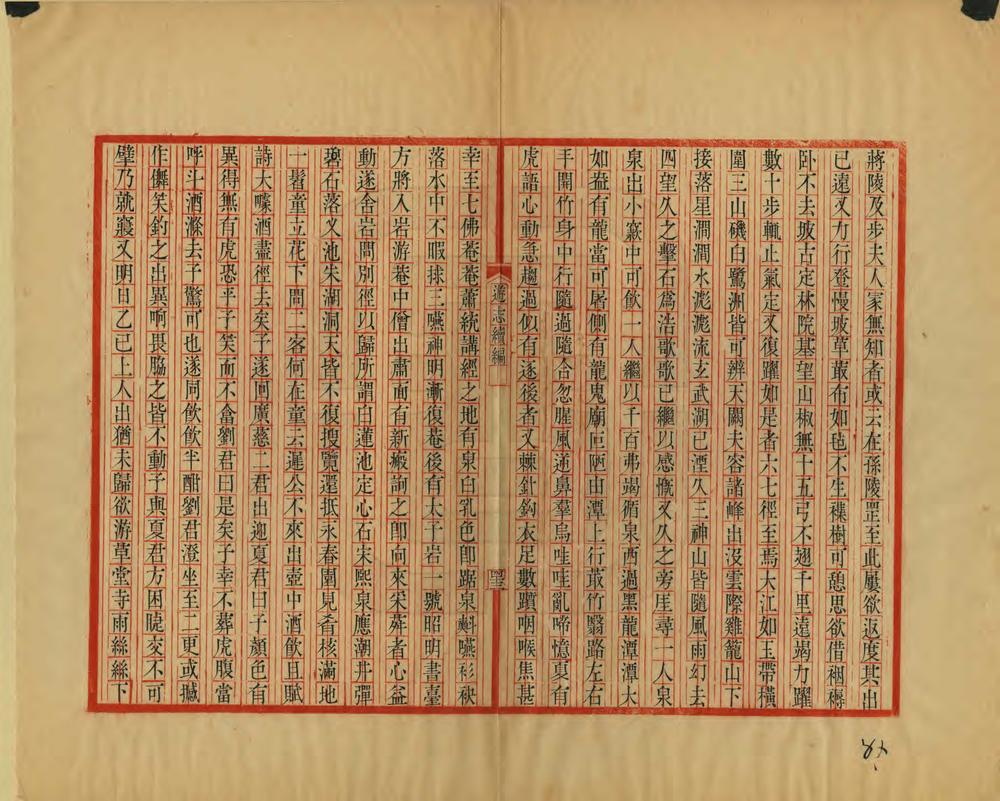 將陵及步夫人冢無知者或云在孫陵罡至此屢欲返度其出
已遠又力行登慢玻草蔓布如毯不生襍樹可憩思欲借裀褥
卧不去玻古定林院基望山椒無十五弓不翅千里遠竭力躍
數十步輒止氣定又復躍如是者六七徑至焉大江如玉帶橫
圍三山磯白鷺洲皆可辨天闕夫容諸峰出沒雲際雞籠山下
接落星澗澗水㵾㵾流玄武湖已湮久三神山皆隨風雨幻去
四望久之擊石爲浩歌歌已繼以感慨又久之旁厓尋一人泉
泉出小竅中可飲一人繼以千百弗竭循泉西過黑龍潭潭大
如盎有龍當可屠側有龍鬼廟叵陋由潭上行菆竹翳路左右
手開竹身中行隨過隨合忽腥風逆鼻羣烏哇哇亂啼憶夏有
虎語心動急趨過似有逐後者又棘針鉤衣足數躓咽喉焦甚
遊志續編
幸至七佛菴菴蕭統講經之地有泉白乳色即踞泉斟嚥衫袂
落水中不暇捄三嚥神明漸復菴後有太子岩一號昭明書臺
方將入岩游菴中僧出肅面有新瘢詢之即向來采薪者心益
動遂舍岩問別徑以歸所謂白蓮池定心石宋熙泉應潮井彈
琴石落人池朱湖洞天皆不復搜覽還抵永春園見肴核滿地
一髫童立花下問二客何在童云遲公不來出壺中酒飲且賦
詩大嚎酒盡徑去矣予遂回廣慈二君出迎夏君曰子顏色有
異得無有虎恐乎予笑而不畣劉君曰是矣子幸不葬虎腹當
呼斗酒滌去子驚可也遂同飲飲半酣劉君澄坐至二更或撼
作儛笑釣之出異响畏脇之皆不動予與夏君方困睫交不可
擘乃就寢又明日乙巳上人出猶未歸欲游草堂寺雨絲絲下